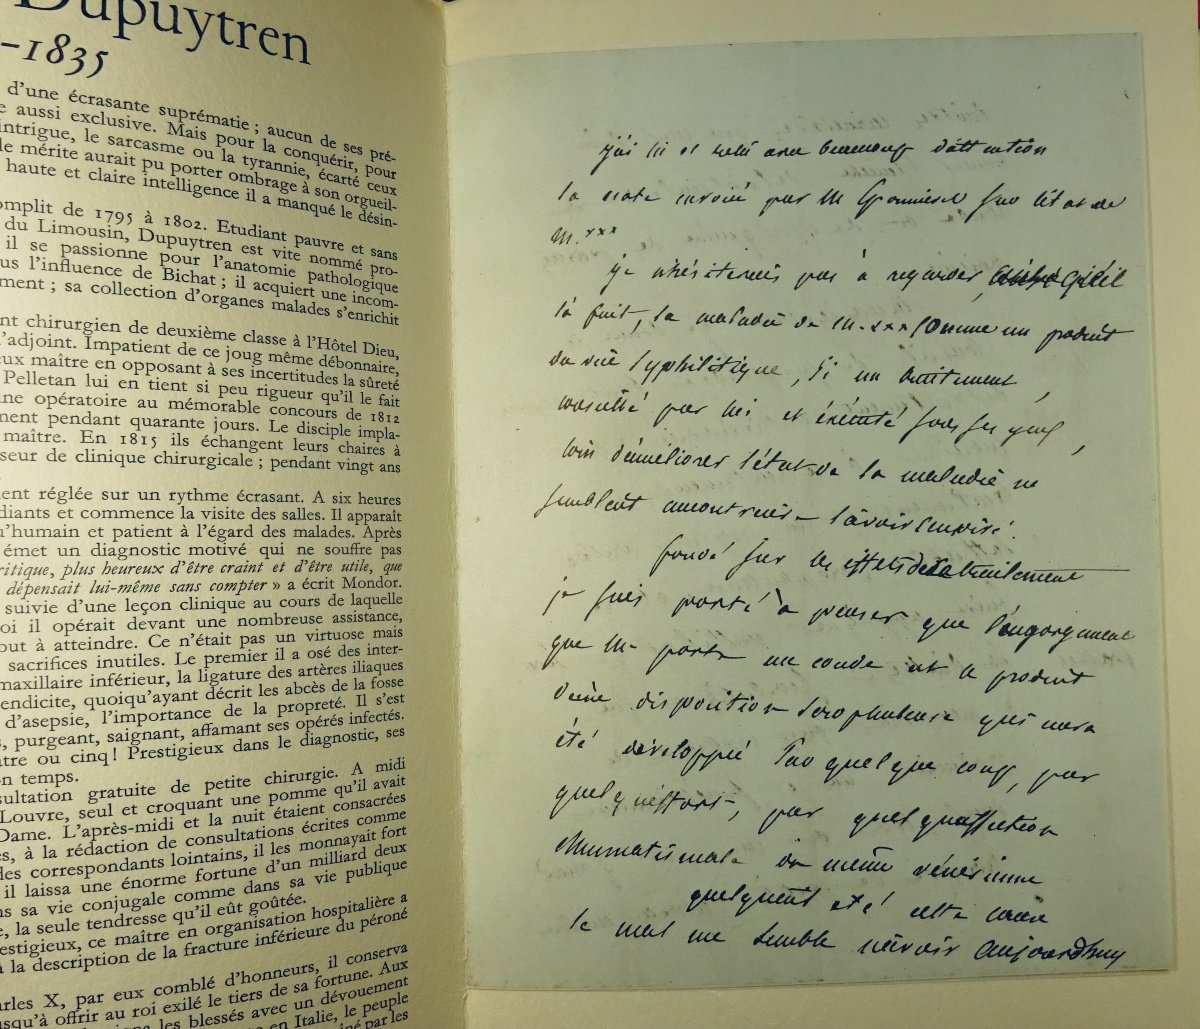 Dupuytren
–1835
d'une écrasante suprématie ; aucun de ses pré-
e aussi exclusive. Mais pour la conquérir, pour
intrigue, le sarcasme ou la tyrannie, écarté ceux
le mérite aurait pu porter ombrage à son orgueil-
haute et claire intelligence il a manqué le désin-
omplit de 1795 à 1802. Etudiant pauvre et sans
du Limousin, Dupuytren est vite nommé pro-
il se passionne pour l'anatomie pathologique
us l'influence de Bichat ; il acquiert une incom-
ment ; sa collection d'organes malades s'enrichit
nt chirurgien de deuxième classe à l'Hôtel Dieu,
l'adjoint. Impatient de ce joug même débonnaire,
eux maître en opposant à ses incertitudes la sûreté
Pelletan lui en tient si peu rigueur qu'il le fait
ine opératoire au mémorable concours de 1812
nent pendant quarante jours. Le disciple impla-
maître. En 1815 ils échangent leurs chaires à
sseur de clinique chirurgicale ; pendant vingt ans
ent réglée sur un rythme écrasant. A six heures
diants et commence la visite des salles. Il apparaît
u'humain et patient à l'égard des malades. Après
émet un diagnostic motivé qui ne souffre pas
ritique, plus heureux d'être craint et d'être utile, que
dépensait lui-même sans compter » a écrit Mondor.
suivie d'une leçon clinique au cours de laquelle
oi il opérait devant une nombreuse assistance,
out à atteindre. Ce n'était pas un virtuose mais
sacrifices inutiles. Le premier il a osé des inter-
maxillaire inférieur, la ligature des artères iliaques
endicite, quoiqu'ayant décrit les abcès de la fosse
d'asepsie, l'importance de la propreté. Il s'est
, purgeant, saignant, affamant ses opérés infectés.
atre ou cinq ! Prestigieux dans le diagnostic, ses
on temps.
sultation gratuite de petite chirurgie. A midi
Louvre, seul et croquant une pomme qu'il avait
Dame. L'après-midi et la nuit étaient consacrées
es, à la rédaction de consultations écrites comme
des correspondants lointains, il les monnayait fort
il laissa une énorme fortune d'un milliard deux
ns sa vie conjugale comme dans sa vie publique
e, la seule tendresse qu'il eût goûtée.
restigieux, ce maître en organisation hospitalière a
à la description de la fracture inférieure du péroné
arles X, par eux comblé d'honneurs, il conserva
usqu'à offrir au roi exilé le tiers de sa fortune. Aux
les blessés avec un dévouement
en Italie, le peuple
par les
j'ai lu et relu avec beaucoup d'attention
la note envoiée par M sur l'état de
M. xxx
je n'hésiterais pas à regarder, qu'il
la fait, la maladie de M. xxx comme un produit
du vice syphilitique, si un traitement
conseillé par lui et éxécuté sous ses yeux,
loin d'améliorer l'état de la maladie ne
semblait au contraire l'avoir empiré.
fondé sur les effets de ce traitement
je suis porté à penser que l'engorgement
que M. porte au coude est le produit
d'une disposition scrophuleuse qui aura
été développée par quelque coup, par
quelqu'effort, par quelqu'affection
rhumatismale ou même vénérienne
quelqu'ait été cette cause
le mal me semble n'avoir aujourd'huy